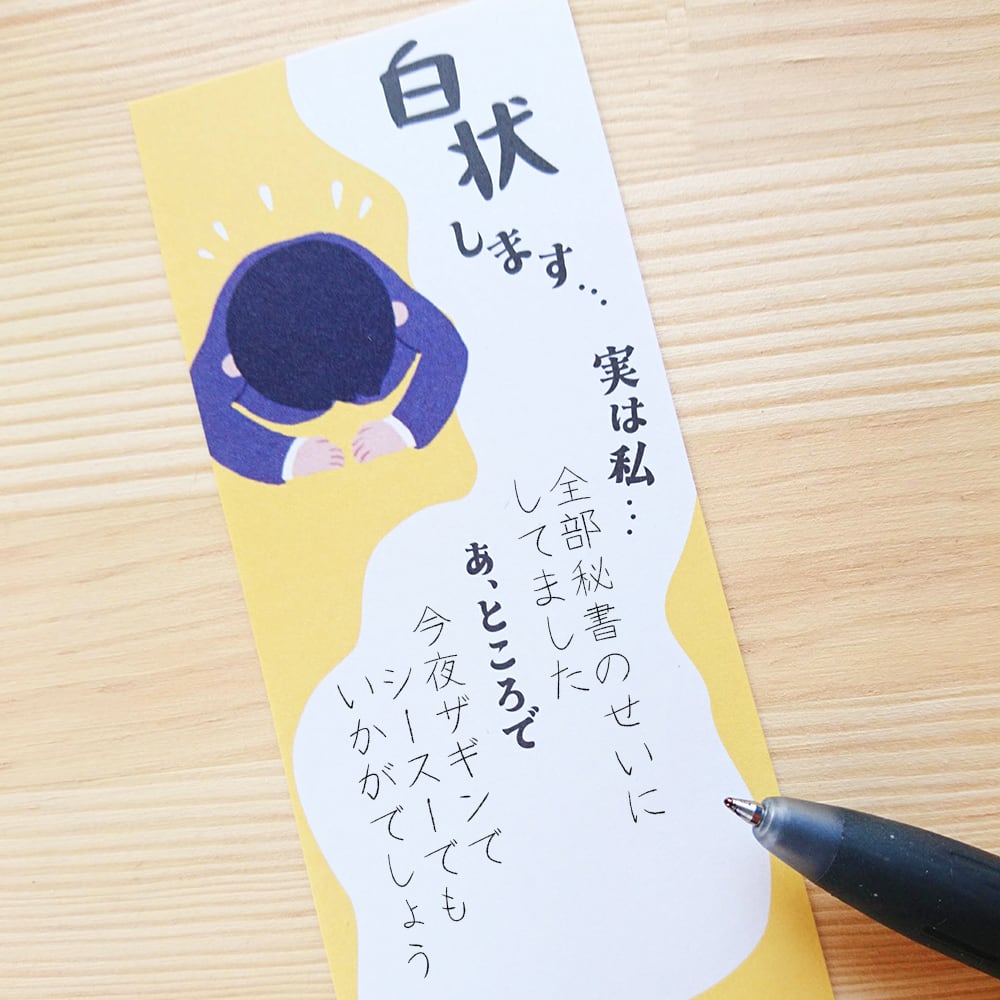 白状
します…
実は私…
全部秘書のせいに
してました
あ、ところで
今夜ザギンで
シースーでも
いかがでしょう